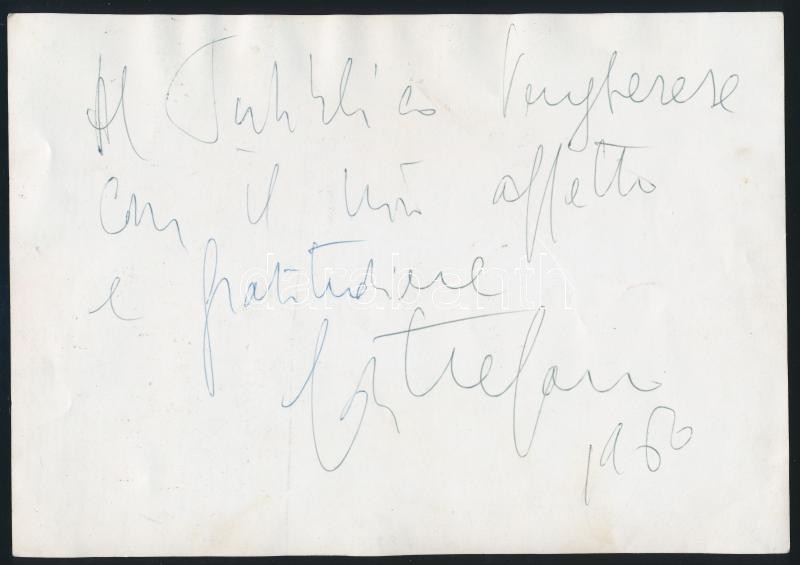 Al Pubblico Ungherese
con il mio affetto
e gratitudine
darabanth
1960